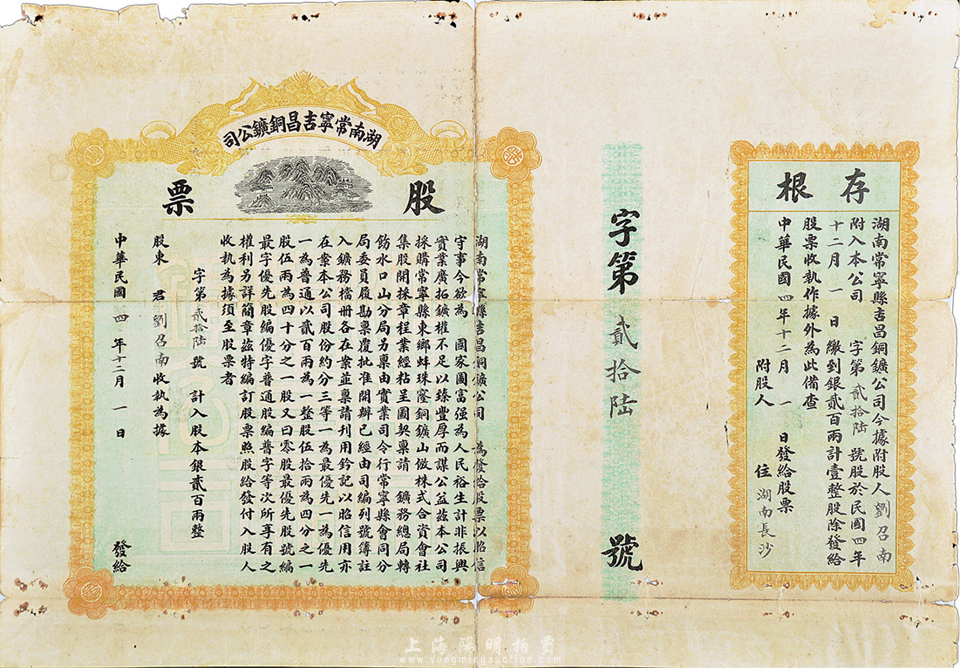 存根
湖南常寧縣吉昌銅鑛公司今據附股人劉召南
附入本公司　字第貳拾陆號股於民國四年
十二月一日繳到銀貳百兩計壹整股除發給
股票收執作據外為此備查
中華民國四年十二月一日發給股票
附股人　住湖南長沙
字第貳拾陆號
湖南常寧吉昌銅鑛公司
股票
湖南常寧縣吉昌銅鑛公司　為發給股票以昭信
守事今欲為　國家圖富强為人民裕生計非振興
實業廣拓鑛權不足以臻豐厚而謀公益茲本公司
採購常寧縣東鄉蚌珠窿銅鑛山倣株式合資會社
集股開採章程業經粘呈圖契稟請　鑛務總局轉
飭水口山分局另稟由實業司令行常寧縣會同分
局委員履勘票覆批准開辦已經由司編列號簿註
入鑛務檔冊各在案並稟請刋用鈐記以昭信用亦
在案本公司股份約分三等一為最優先一為優先
一為普通以貳百兩為一整股伍拾兩為四分之一
股伍兩為四十分之一股又曰零股最優先股號編
最字優先股編優字普通股編普字等次所享有之
權利另詳簡章茲特編訂股票照股給發付入股人
收執為據須至股票者
字第貳拾陆號　計入股本銀貳百兩整
股東　君劉召南收執為據
中華民國四年十二月一日　發給
上海陽明拍賣
www.yangmingauction.com